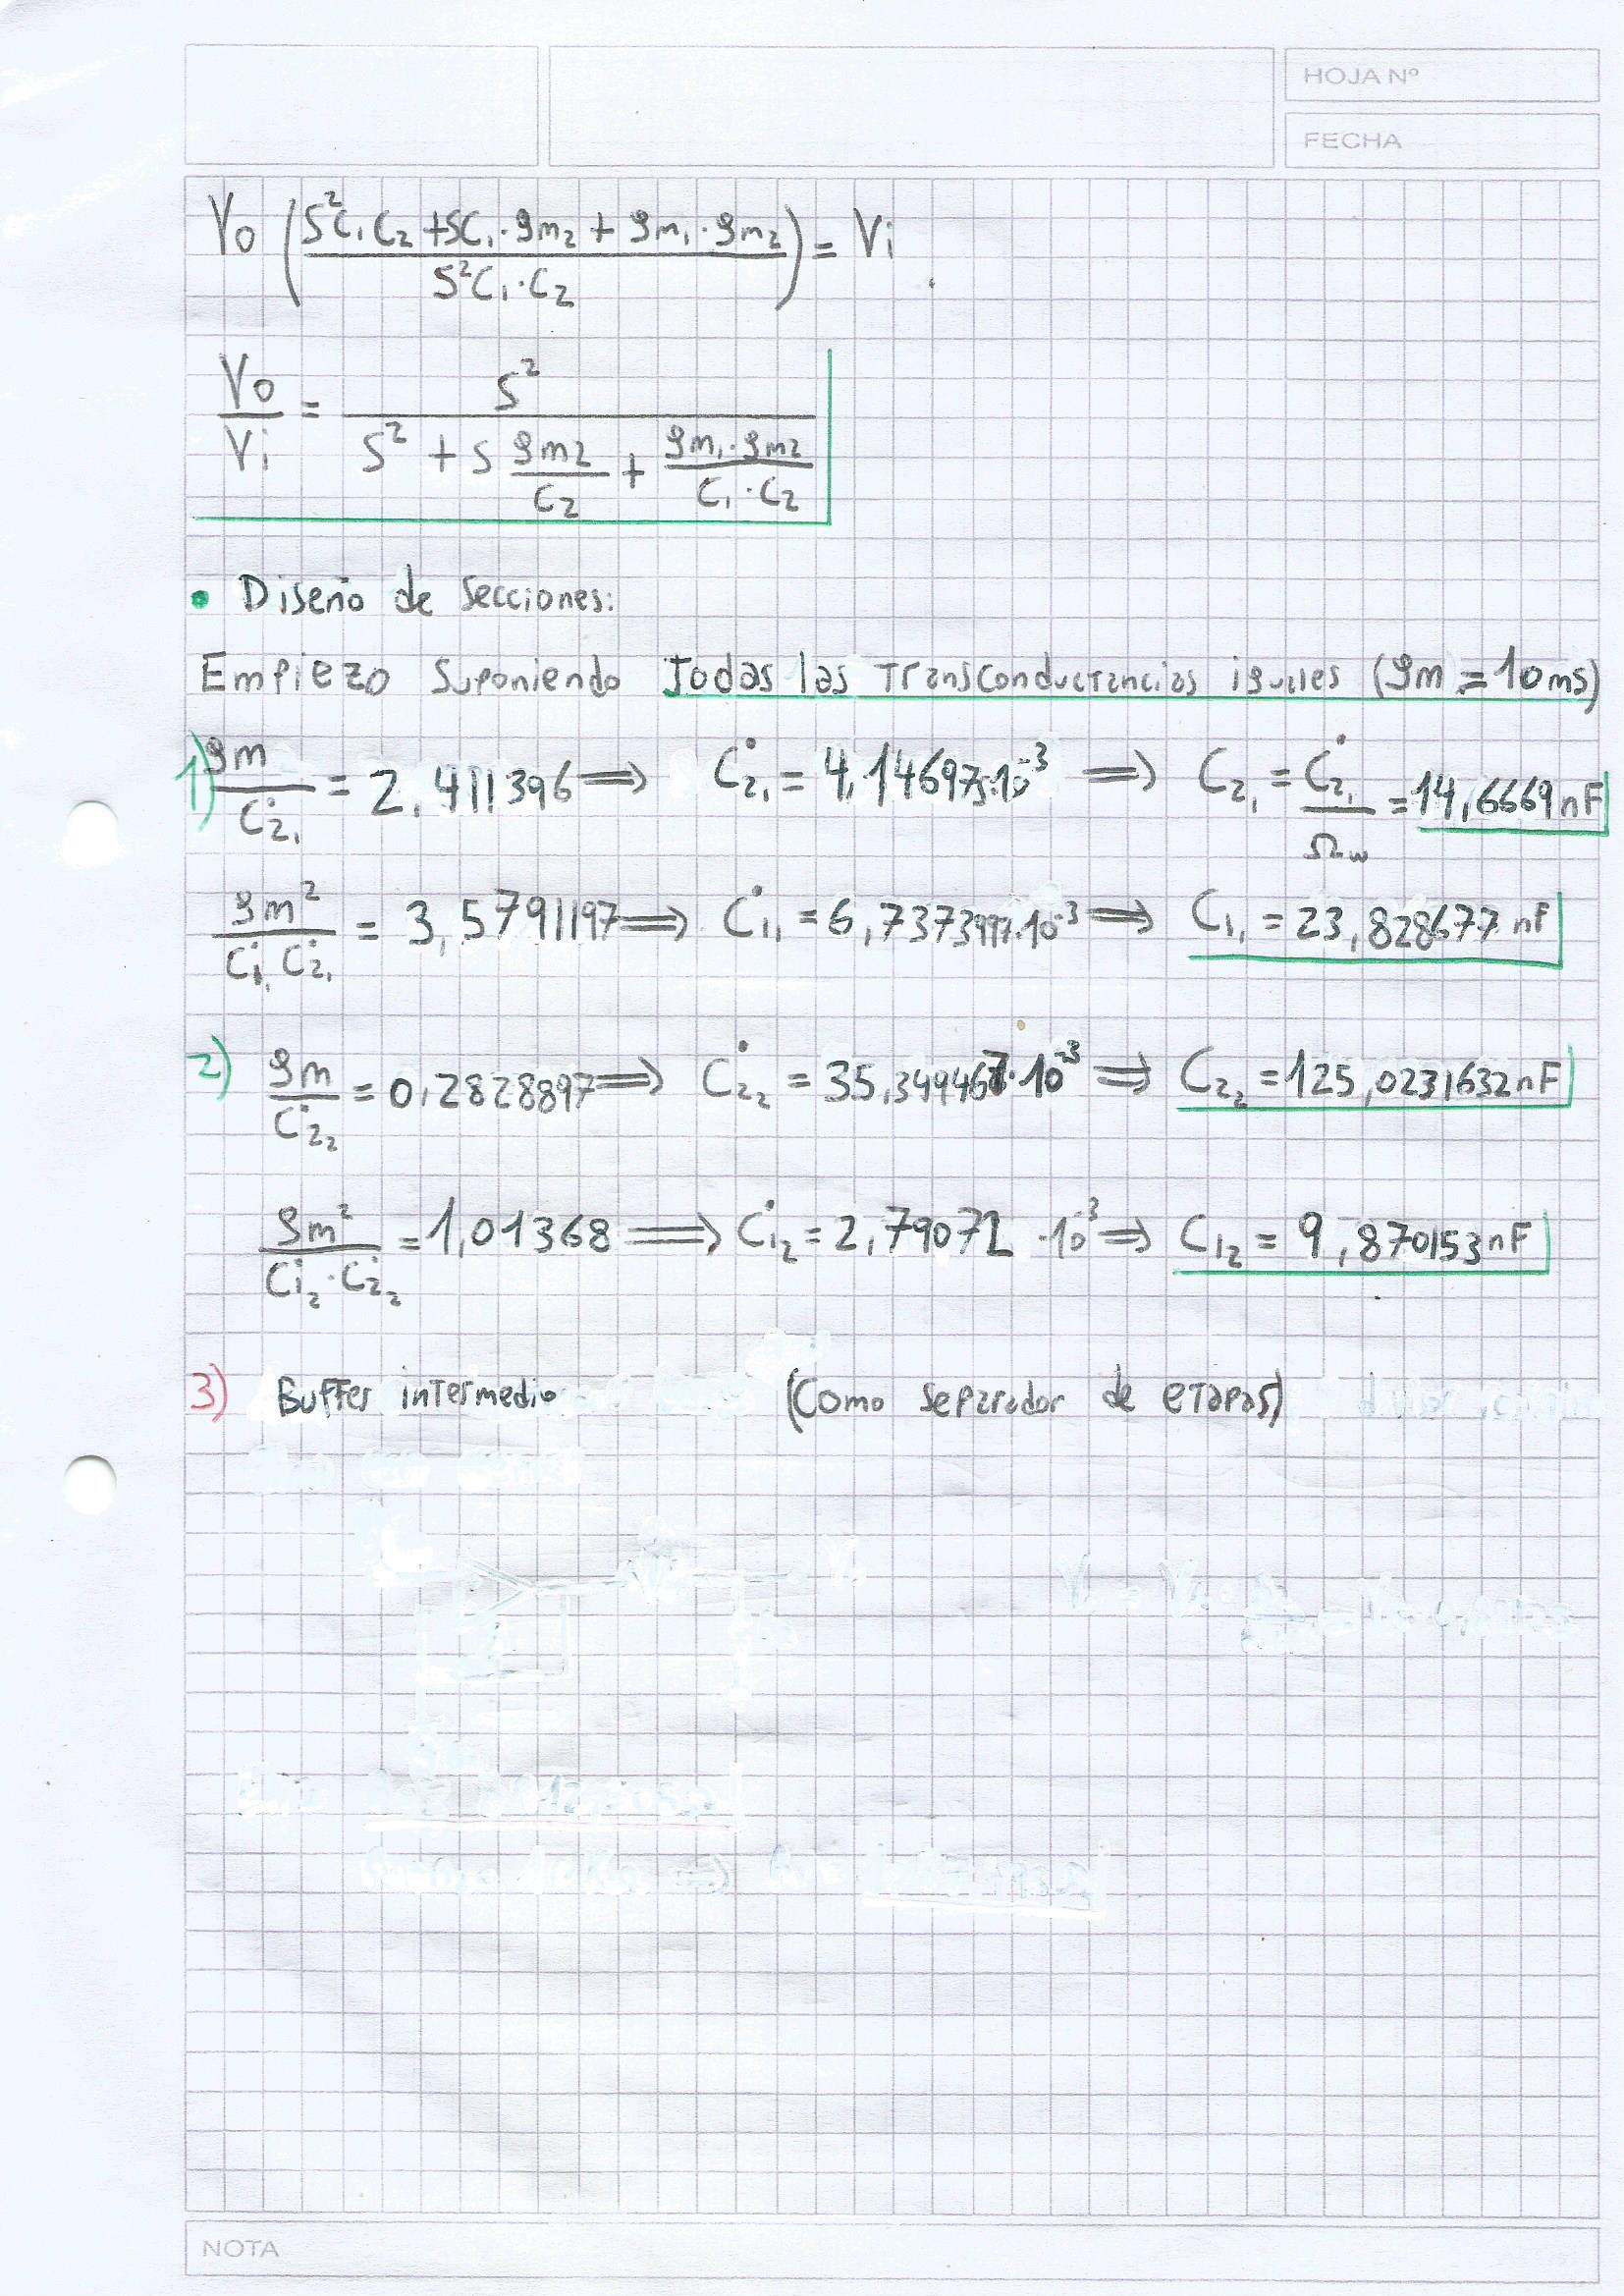 HOJA Nº
FECHA
Vo ( (S²C₁C₂ + SC₁·gm₂ + gm₁·gm₂) / (S²C₁·C₂) ) = Vi
Vo/Vi = S² / (S² + S gm2/C₂ + (gm₁·gm2)/(C₁·C₂))
• Diseño de secciones:
Empiezo suponiendo Todas las Transconductancias iguales (gm = 10ms)
1) gm/C₂₁° = 2,411396 ⟹ C₂₁° = 4,14697·10⁻³ ⟹ C₂₁ = C₂₁°/Ωw = 14,6669nF
gm²/(C₁₁° C₂₁°) = 3,5791197 ⟹ C₁₁° = 6,7373997·10⁻³ ⟹ C₁₁ = 23,828677 nF
2) gm/C₂₂° = 0,2828897 ⟹ C₂₂° = 35,349467·10⁻³ ⟹ C₂₂ = 125,0231632nF
gm²/(C₁₂°·C₂₂°) = 1,01368 ⟹ C₁₂° = 2,79072 ·10⁻³ ⟹ C₁₂ = 9,870153nF
3) Buffer intermedio (Como separador de etapas)
NOTA